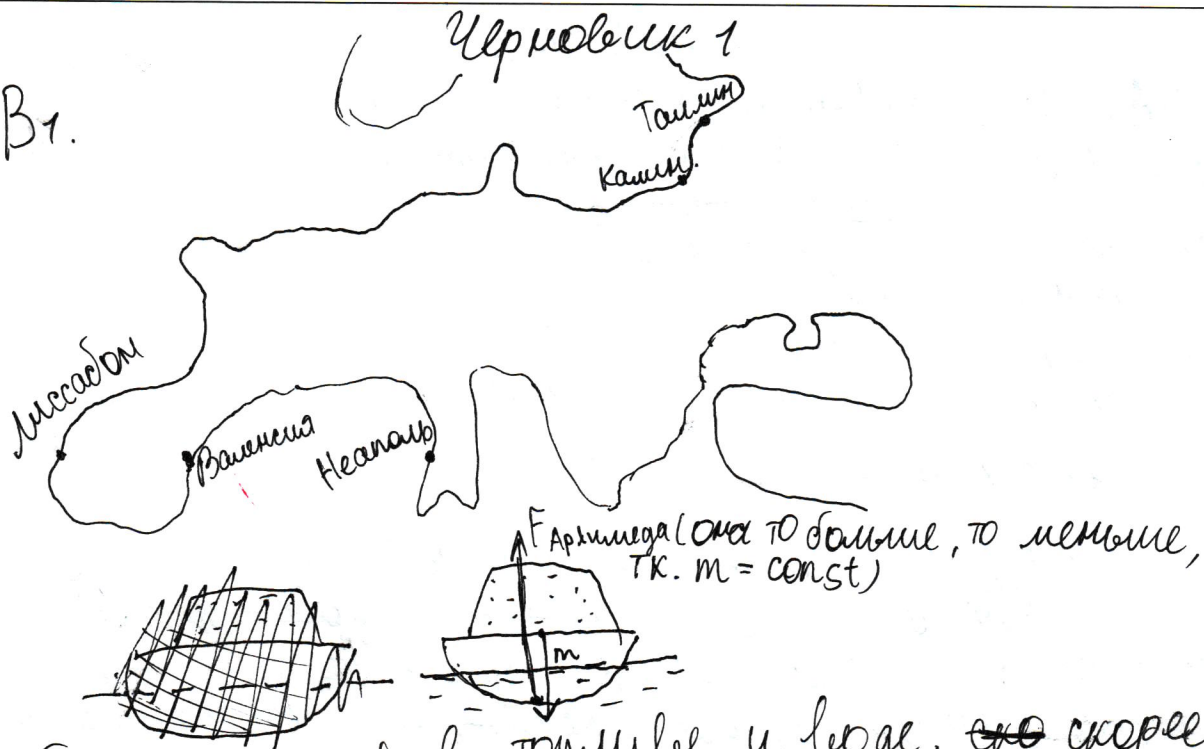 Черновик 1
В1.
Таллин
Калин.
Лиссабон
Валенсия
Неаполь
F Архимеда (она то больше, то меньше,
т.к. m = const)
m
в топливе и воде, скорее